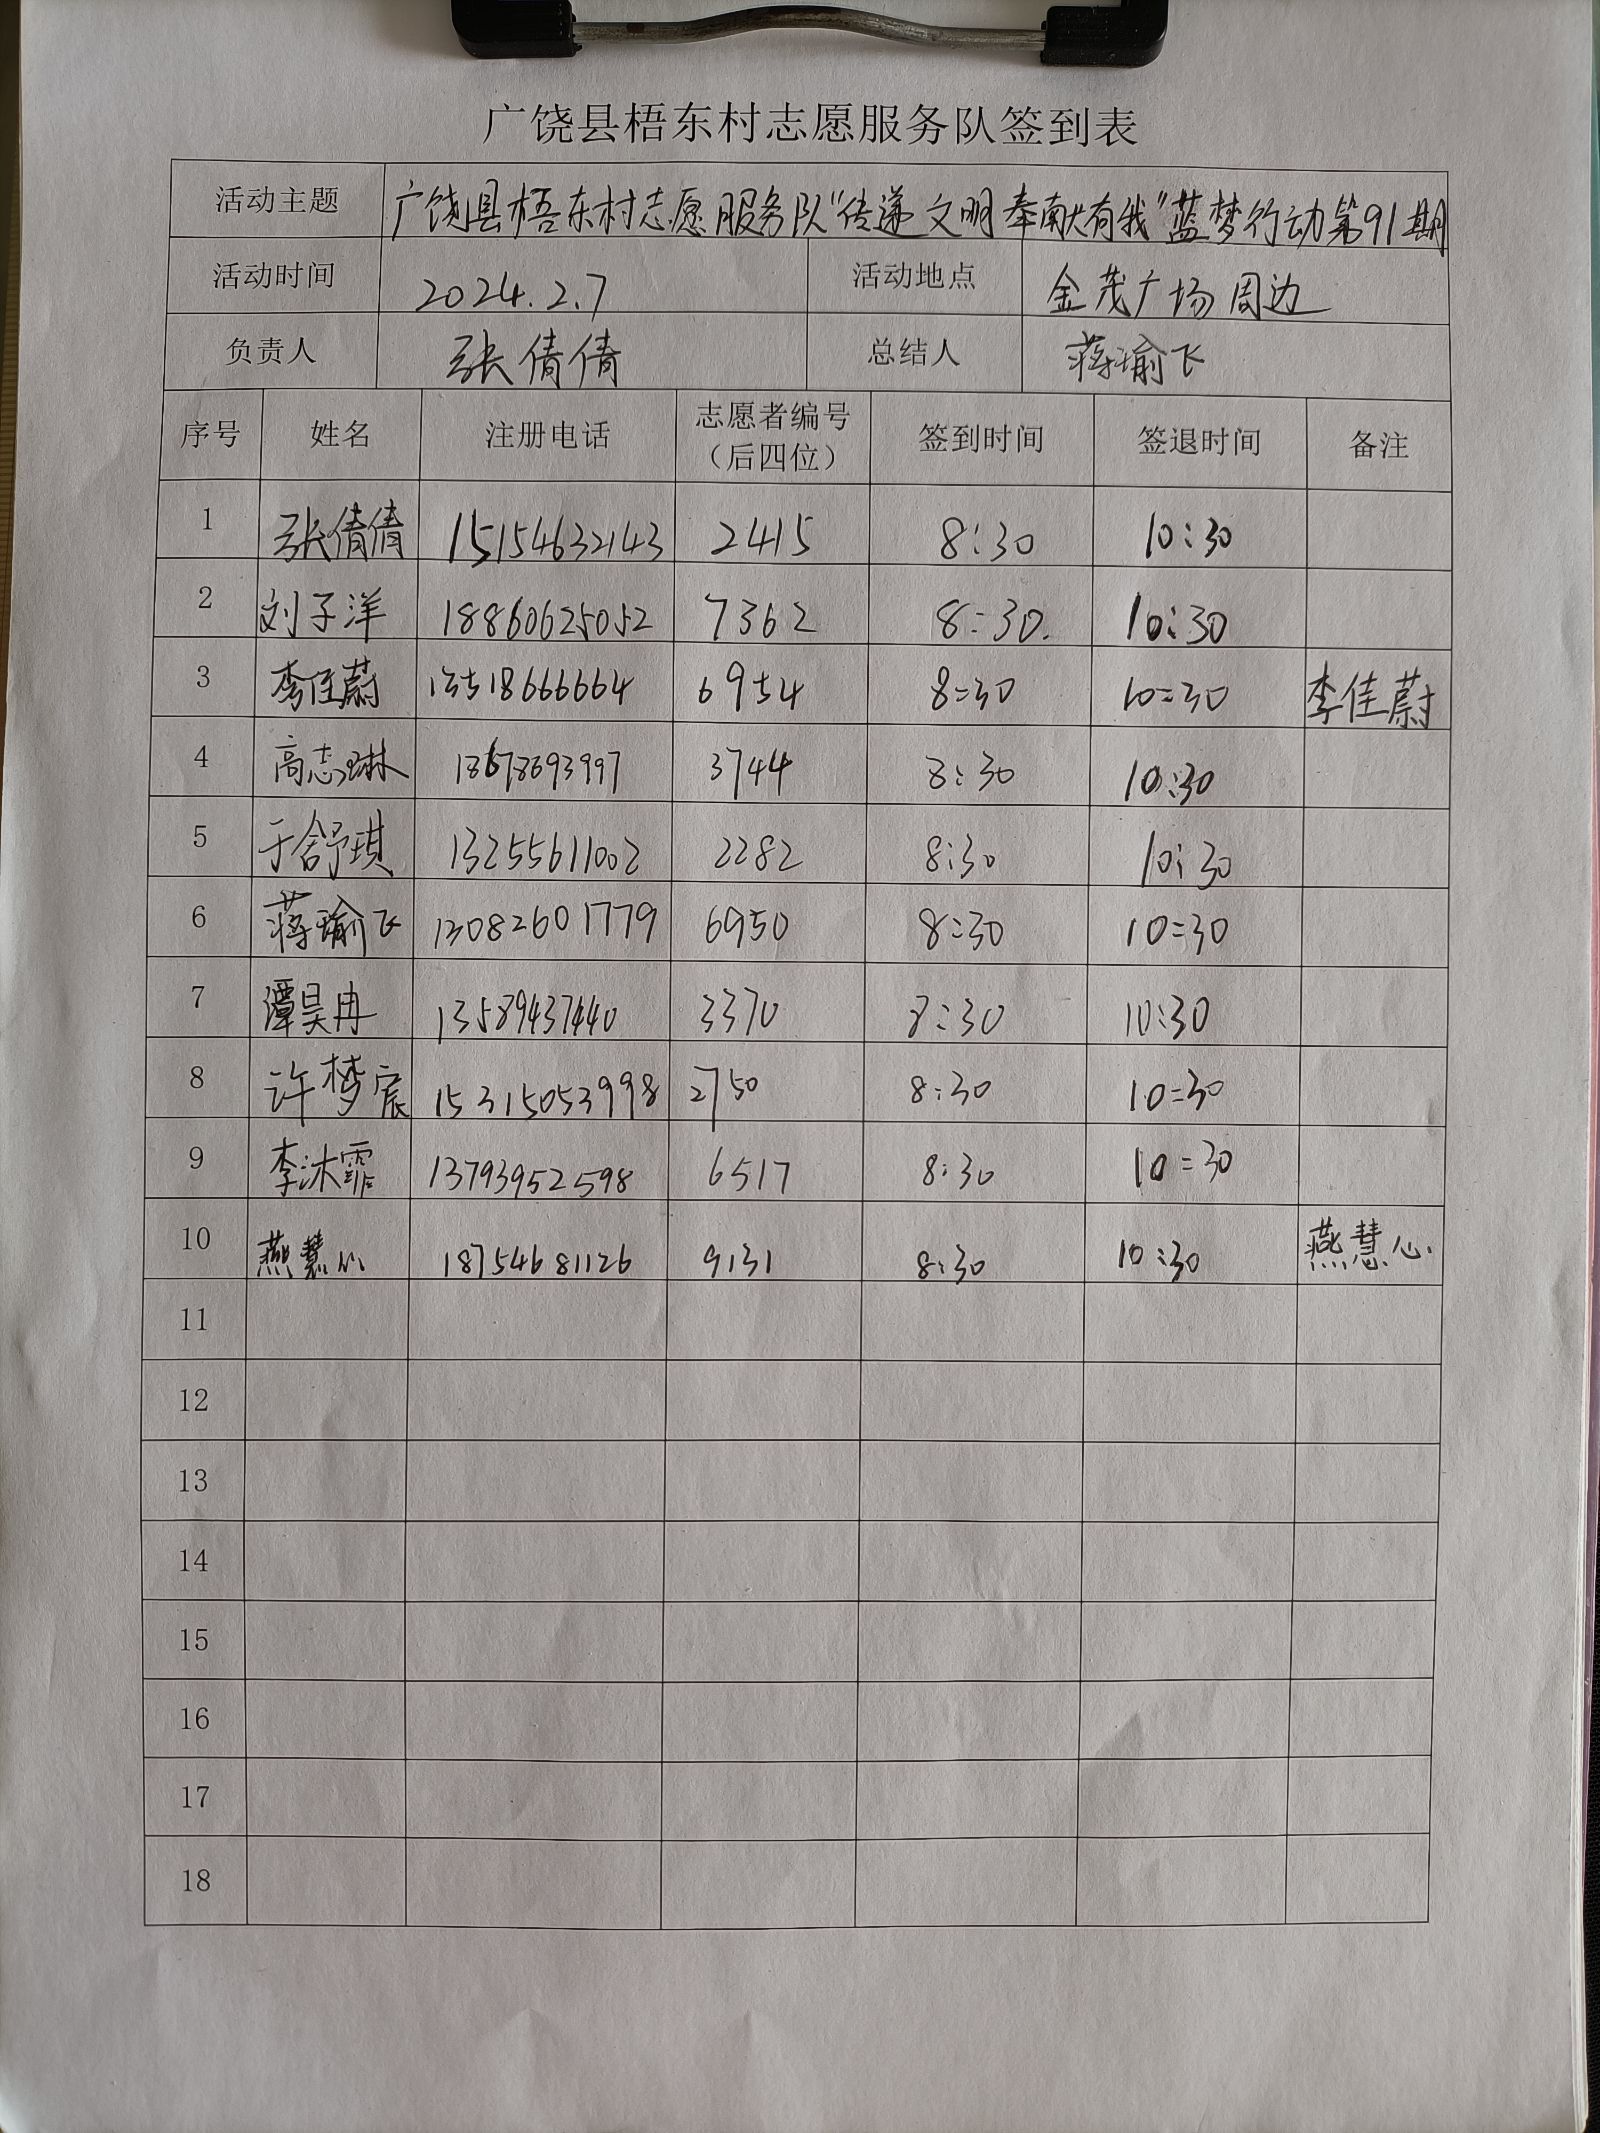 广饶县梧东村志愿服务队签到表
活动主题 广饶县梧东村志愿服务队“传递文明 奉献有我”蓝梦行动第91期
活动时间 2024.2.7 活动地点 金茂广场周边
负责人 张倩倩 总结人 蒋瑜飞
序号 姓名 注册电话 志愿者编号（后四位） 签到时间 签退时间 备注
1 张倩倩 15154632143 2415 8:30 10:30
2 刘子洋 18860625052 7362 8:30. 10:30
3 李佳蔚 13518666664 6954 8:30 10:30 李佳蔚
4 高志琳 18678693997 3744 8:30 10:30
5 于舒琪 13255611002 2282 8:30 10:30
6 蒋瑜飞 13082601779 6950 8:30 10:30
7 谭昊冉 13589437440 3370 8:30 10:30
8 许梦宸 15315053998 2750 8:30 10:30
9 李沐霏 13793952598 6517 8:30 10:30
10 燕慧心 18754681126 9131 8:30 10:30 燕慧心
11
12
13
14
15
16
17
18